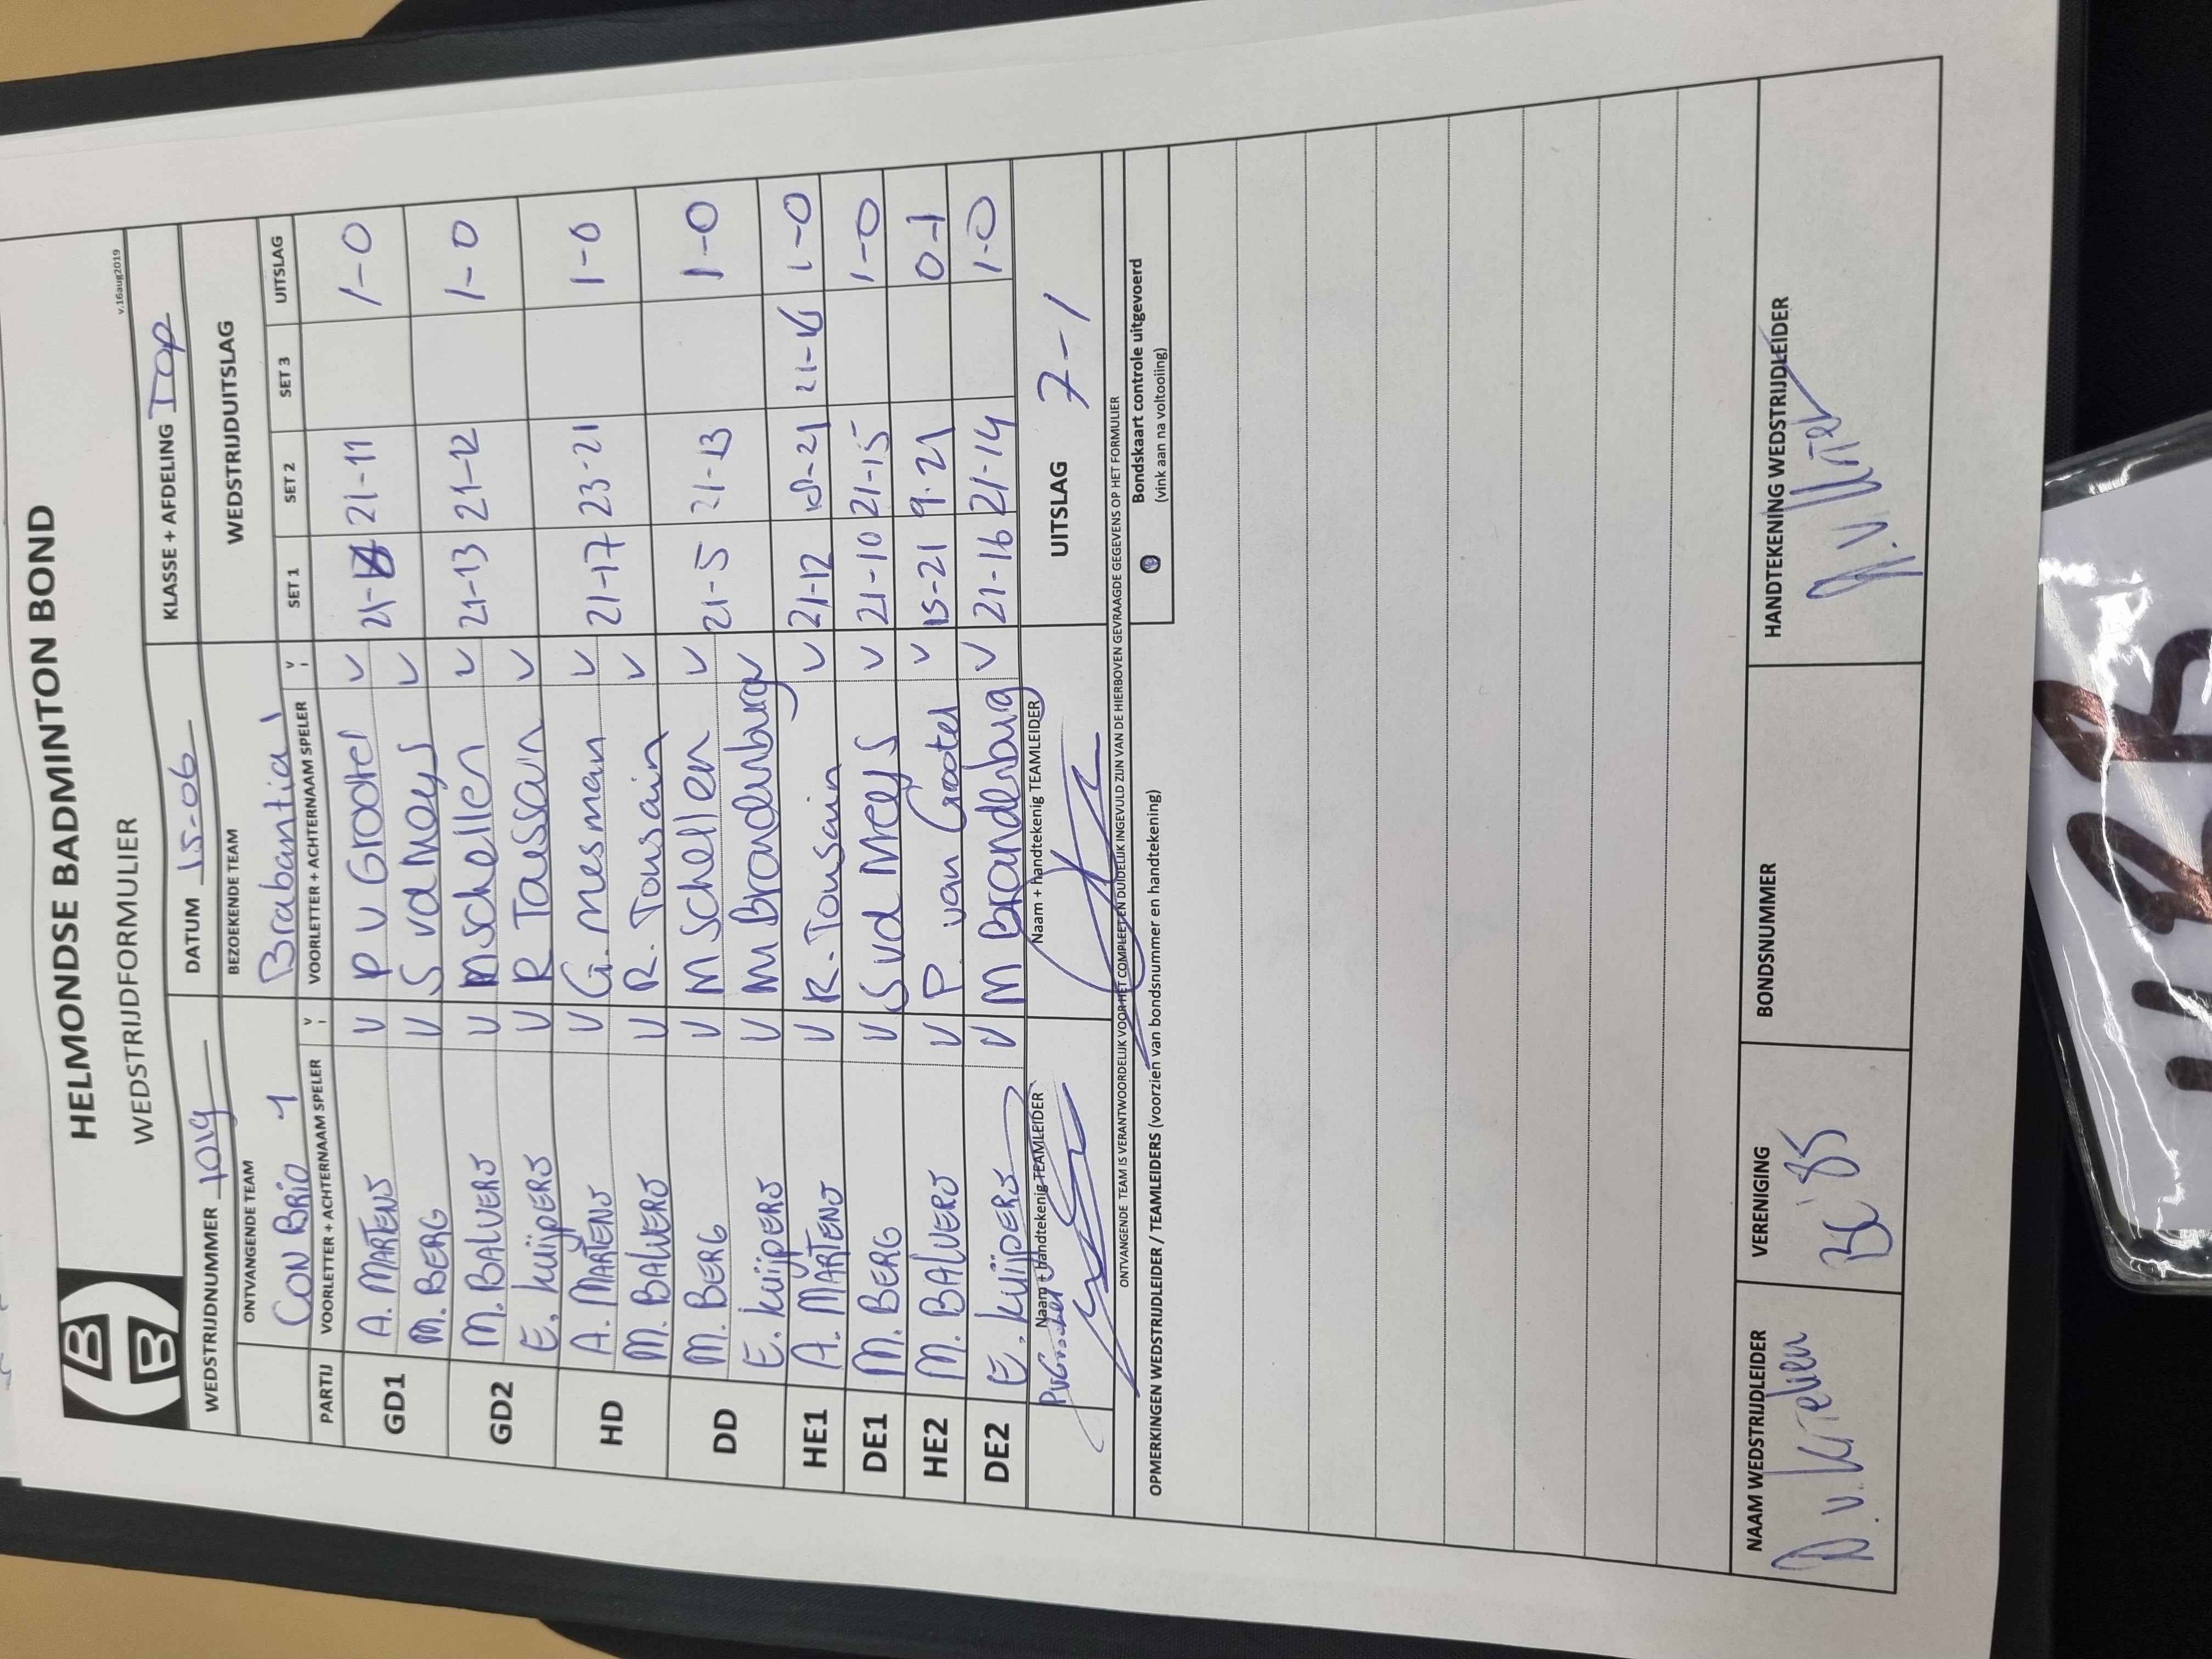 HELMONDSE BADMINTON BOND
WEDSTRIJDFORMULIER
v.16aug2019
WEDSTRIJDNUMMER 1019 DATUM 15-06 KLASSE + AFDELING TOP
ONTVANGENDE TEAM BEZOEKENDE TEAM WEDSTRIJDUITSLAG
CON BRIO 1 Brabantia 1
PARTIJ VOORLETTER + ACHTERNAAM SPELER V VOORLETTER + ACHTERNAAM SPELER V SET 1 SET 2 SET 3 UITSLAG
GD1 A. MARTENS V P v Grootel V 21- 21-11 1-0
M. BERG V S vd Meys V
GD2 M. BALVERS V M Schellen V 21-13 21-12 1-0
E. KUIJPERS V R Taussain V
HD A. MARTENS V G. Mesman V 21-17 23-21 1-0
M. BALVERS V R. Tousain V
DD M. BERG V M Schellen V 21-5 21-13 1-0
E. KUIJPERS V M Brandenburg V
HE1 A. MARTENS V R. Tousain V 21-12 18-21 21-16 1-0
DE1 M. BERG V S vd Meys V 21-10 21-15 1-0
HE2 M. BALVERS V P. van Grootel V 15-21 9-21 0-1
DE2 E. KUIJPERS V M Brandenburg V 21-16 21-14 1-0
Naam + handtekenig TEAMLEIDER Naam + handtekenig TEAMLEIDER UITSLAG 7-1
PvGrootel
ONTVANGENDE TEAM IS VERANTWOORDELIJK VOOR HET COMPLEET EN DUIDELIJK INGEVULD ZIJN VAN DE HIERBOVEN GEVRAAGDE GEGEVENS OP HET FORMULIER
OPMERKINGEN WEDSTRIJDLEIDER / TEAMLEIDERS (voorzien van bondsnummer en handtekening)
Bondskaart controle uitgevoerd
(vink aan na voltooiing)
NAAM WEDSTRIJDLEIDER VERENIGING BONDSNUMMER HANDTEKENING WEDSTRIJDLEIDER
BC '85